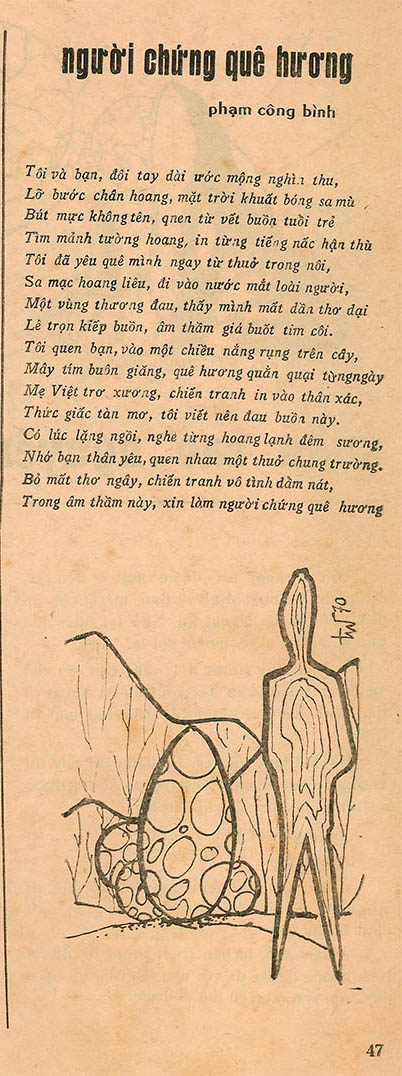 người chứng quê hương
phạm công bình
Tôi và bạn, đôi tay dài ước mộng nghìn thu,
Lỡ bước chân hoang, mặt trời khuất bóng sa mù
Bút mực không tên, quen từ vết buồn tuổi trẻ
Tìm mảnh tường hoang, in từng tiếng nấc hận thù
Tôi đã yêu quê mình ngay từ thuở trong nôi,
Sa mạc hoang liêu, đi vào nước mắt loài người,
Một vùng thương đau, thấy mình mất dần thơ dại
Lê trọn kiếp buồn, âm thầm giá buốt tim côi.
Tôi quen bạn, vào một chiều nắng rụng trên cây,
Mây tím buôn giăng, quê hương quằn quại từngngày
Mẹ Việt trơ xương, chiến tranh in vào thân xác,
Thức giấc tàn mơ, tôi viết nên đau buồn này.
Có lúc lặng ngồi, nghe từng hoang lạnh đêm sương,
Nhớ bạn thân yêu, quen nhau một thuở chung trường.
Bỏ mất thơ ngây, chiến tranh vô tình dẫm nát,
Trong âm thầm này, xin làm người chứng quê hương
70
47